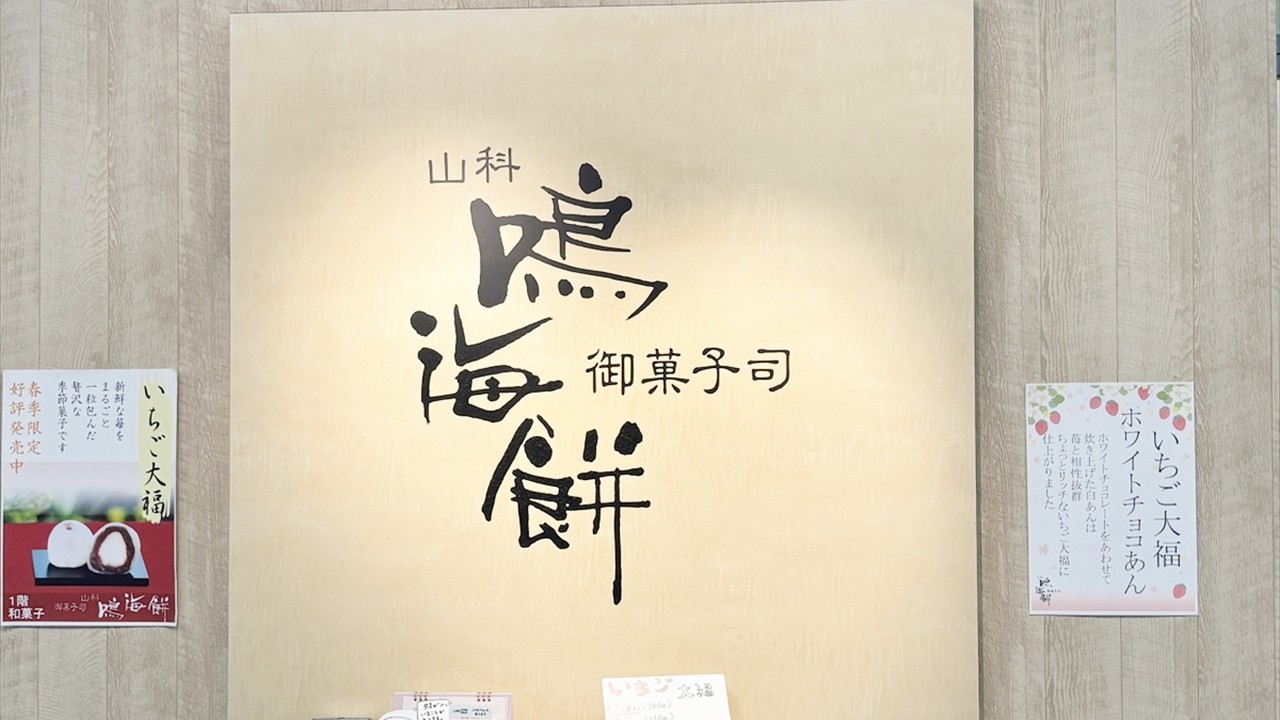 山科
鳴海餅
御菓子司
いちご大福
新鮮な苺を
まるごと
一粒包んだ
贅沢な
季節菓子です
春季限定
好評発売中
1階
和菓子
山科
御菓子司
鳴海餅
いちご大福
ホワイトチョコあん
ホワイトチョコレートをあわせて
炊き上げた白あんは
苺と相性抜群
ちょっとリッチないちご大福に
仕上がりました
鳴海餅
いちご 大福